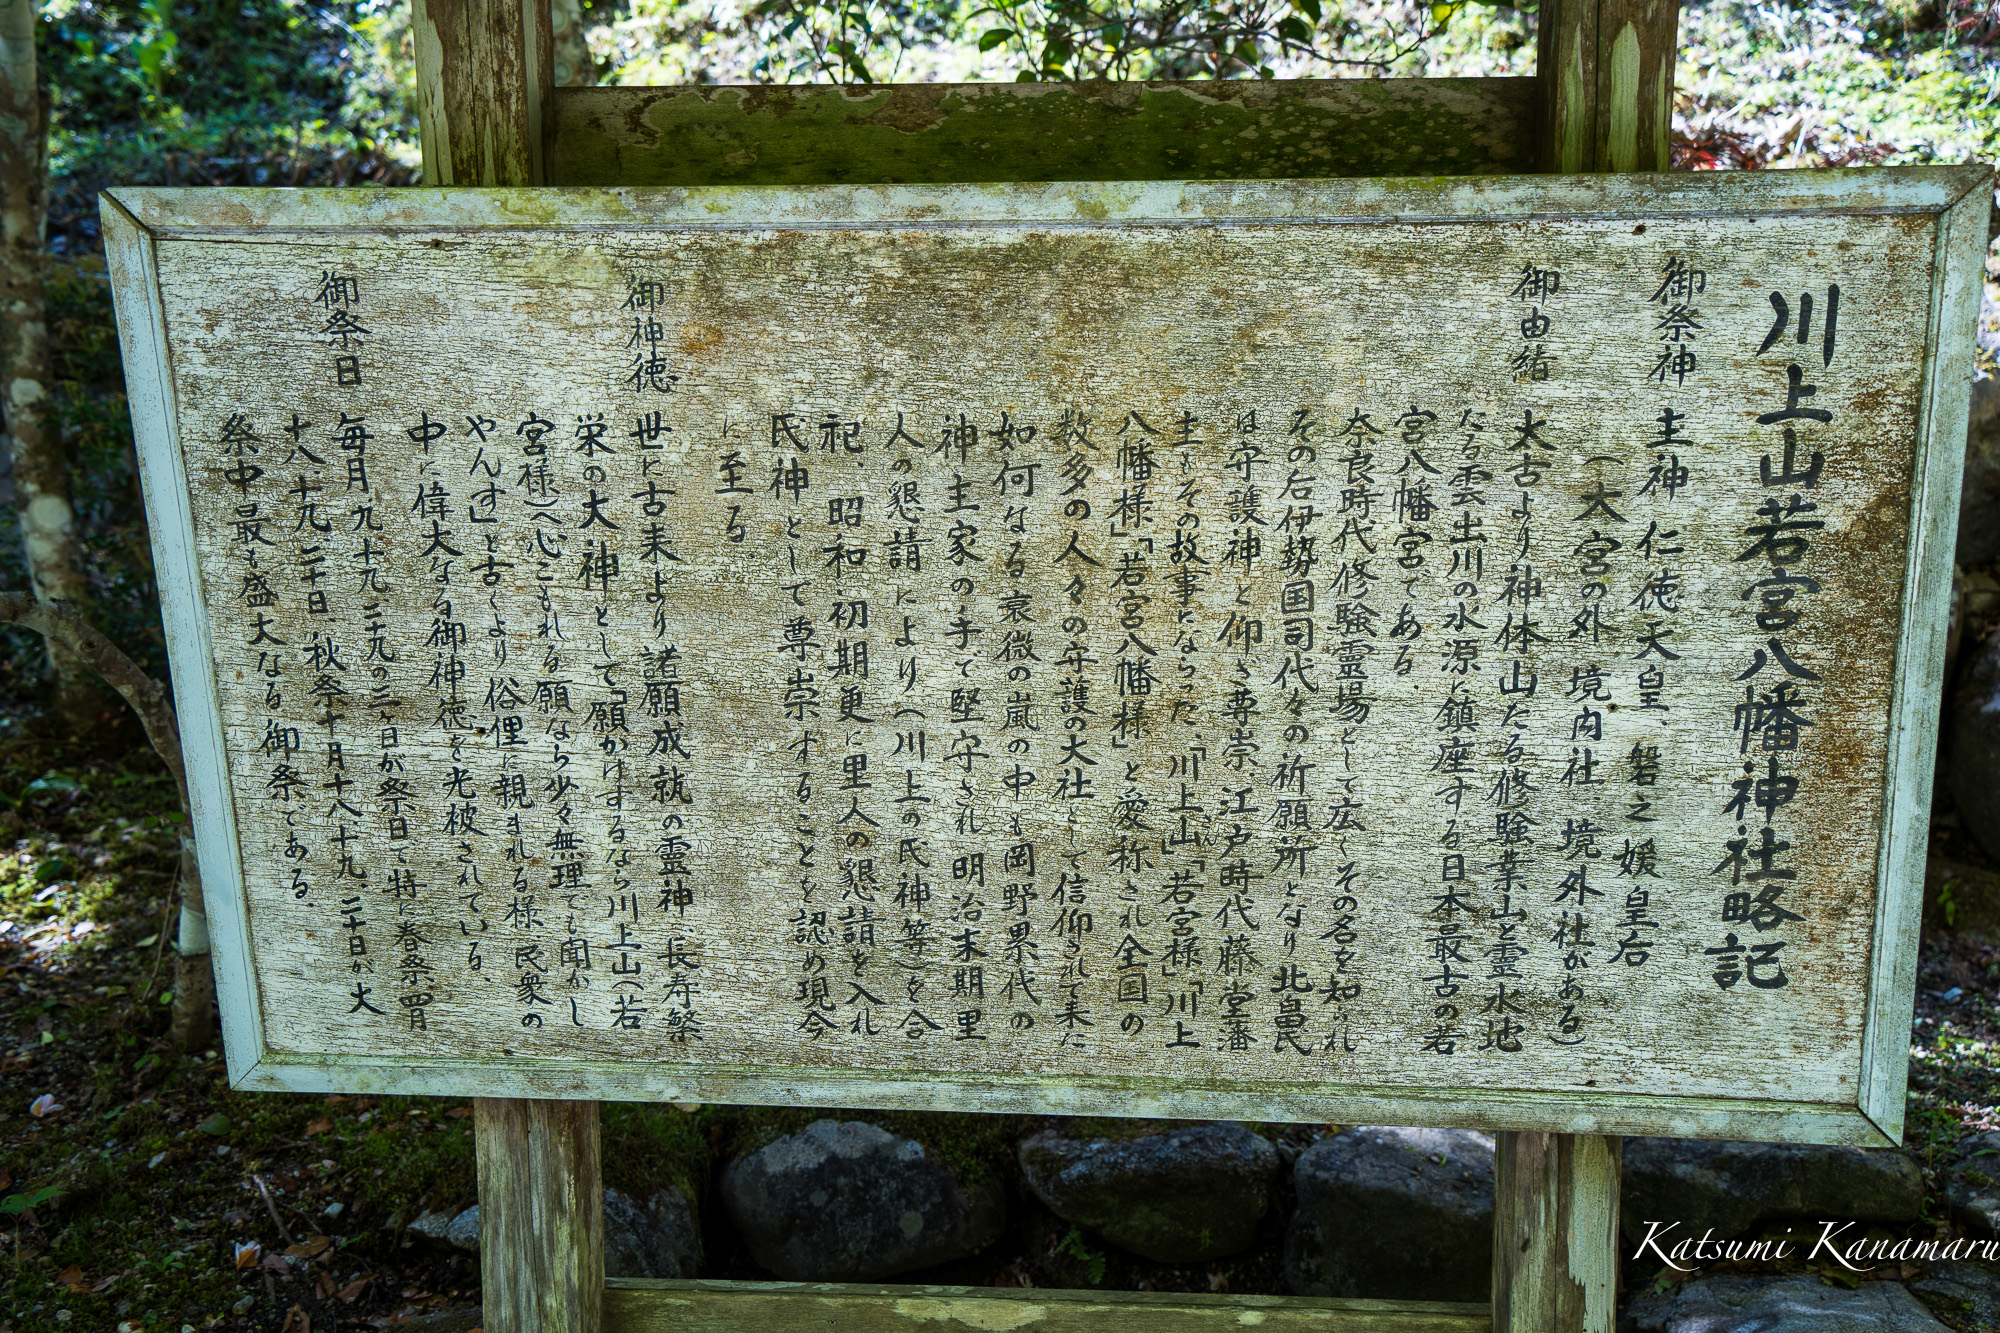 川上山若宮八幡神社略記
御祭神 主神 仁徳天皇、磐之媛皇后
(大宮の外 境内社 境外社がある)
御由緒 太古より神体山たる修験業山と霊水地
たる雲出川の水源に鎮座する日本最古の若
宮八幡宮である.
奈良時代修験霊場として広くその名を知られ
その后伊勢国司代々の祈願所となり北畠氏
は守護神と仰ぎ尊崇、江戸時代藤堂藩
主もその故事にならった、「川上山」「若宮様」「川上
八幡様」「若宮八幡様」と愛称され全国の
数多の人々の守護の大社として信仰されて来た
如何なる衰微の嵐の中も岡野累代の
神主家の手で堅守され明治末期里
人の懇請により、(川上の氏神等)を合
祀、昭和初期更に里人の懇請を入れ
氏神として尊崇することを認め現今
に至る.
御神徳 世に古来より諸願成就の霊神、長寿繁
栄の大神として「願かけするなら川上山(若
宮様)へ心こもれる願なら少々無理でも聞かし
やんす」と古くより俗俚に親まれる様民衆の
中に偉大なる御神徳を光被されている.
御祭日 毎月九十九二十九の三ヶ日が祭日で特に春祭四月
十八、十九、二十日、秋祭十月十八十九、二十日が大
祭中最も盛大なる御祭である.
Katsumi Kanamaru